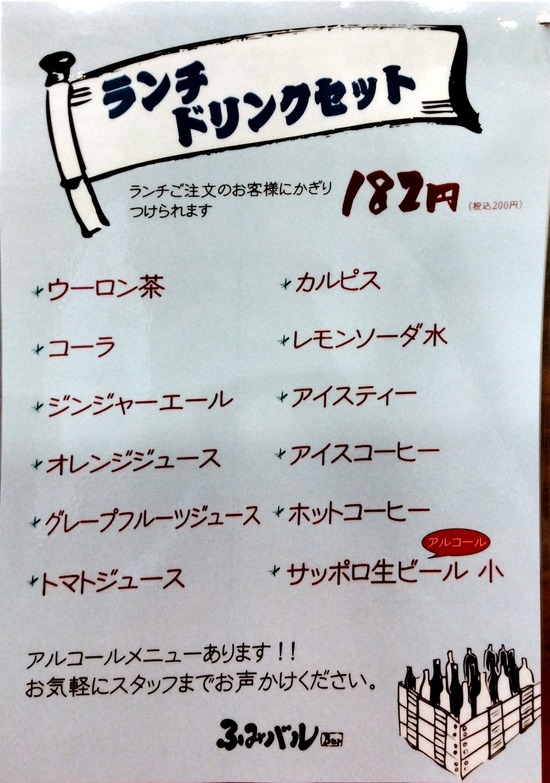 ランチ
ドリンクセット
ランチご注文のお客様にかぎり
つけられます
182円 (税込200円)
ウーロン茶
コーラ
ジンジャーエール
オレンジジュース
グレープフルーツジュース
トマトジュース
カルピス
レモンソーダ水
アイスティー
アイスコーヒー
ホットコーヒー
アルコール
サッポロ生ビール 小
アルコールメニューあります!!
お気軽にスタッフまでお声かけください。
ふみバル